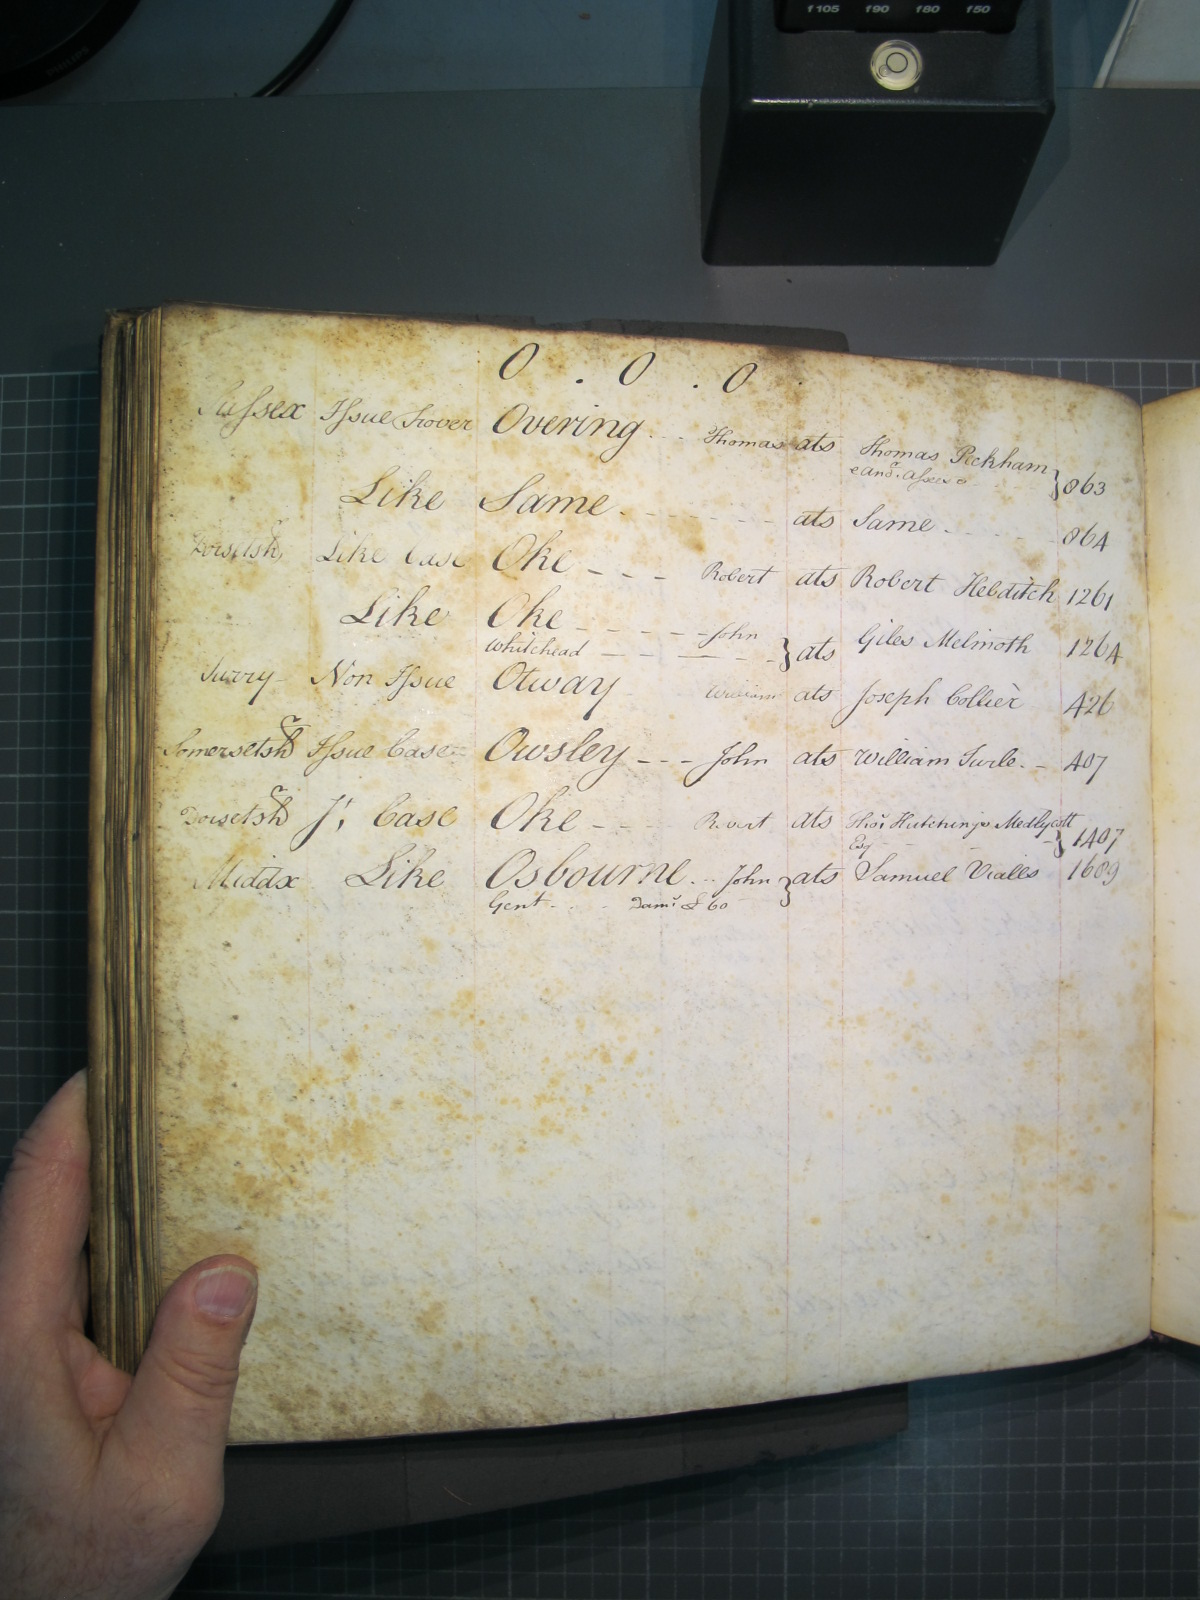 PHILIPS
f105 f90 f80 f50
O . O . O
Sussex Issue Trover Overing Thomas ats Thomas Peckham
863
Like Same ats Same 864
Dorsetsh. Like Case Oke Robert ats Robert Hebditch 1261
Like Oke John
Whitehead } ats Giles Melmoth 1264
Surry Non Issue Otway William ats Joseph Collier 426
Somersetshr Issue Case Owsley John ats William Turle 407
Dorsetshr Case Oke Robert ats Thos Hutchings Medlycott
Esq } 1407
Middx Like Osbourne John } ats Samuel Vialls 1689
Gent Dams £60